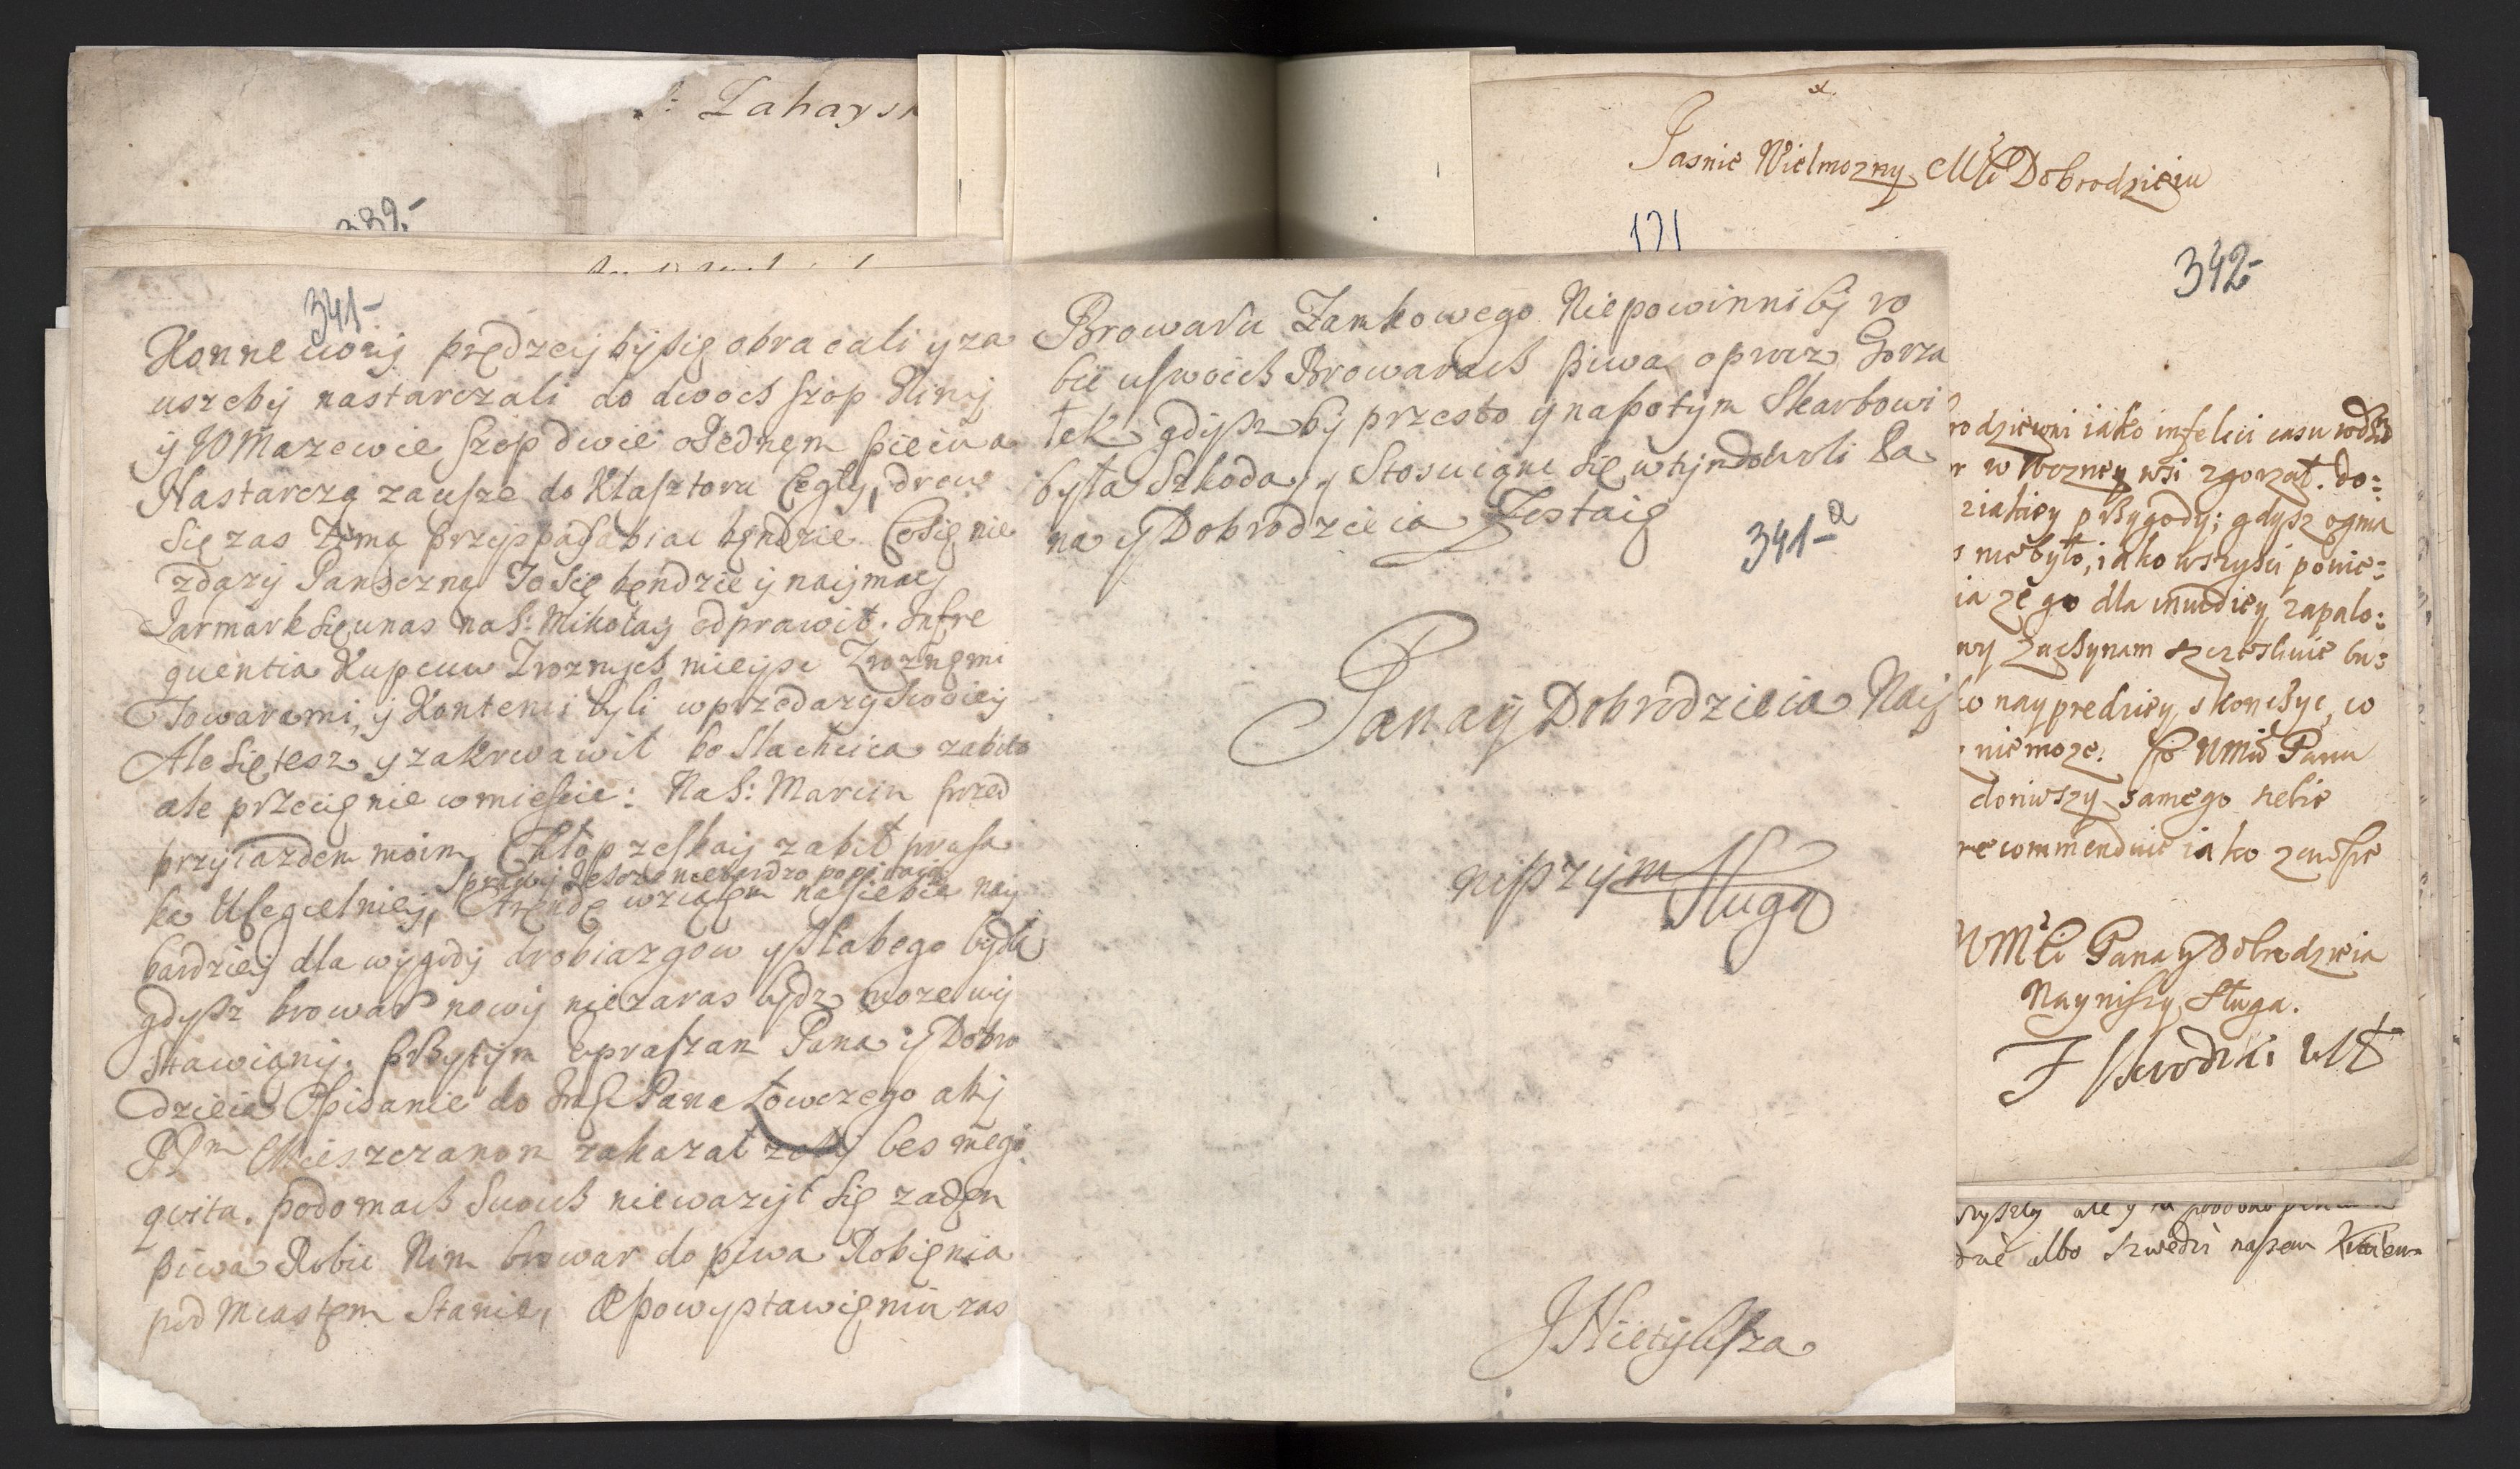 Zahaysk
339.-
341-
Konne wozy prędzey by się obracali y za
uszeby nastarczali do dwoch szop Gliny
y W Mazewie szop dwie o Jednem piecu a
Nastarczą zausze do Klasztoru Cegły, drew
Się zas Zimą przysposabiac będzie Co się nie
zdąży Panszczyną To się będzie y naymacz
Jarmark się u nas na S: Mikołay odprawił. Infre
quentia Kupcuw Zroznych mieysc Zroznemi
Towarami, y Kontenci byli w przedazy swoiey
Ale się tesz y zakrwawił bo slachcica zabito
ale przecię nie w miescie: Na S: Marcin przed
przyiazdem moim Chłop zabił prasa
ka U Cegielniey, Arendę wziąłem na siebie nay
bardziey dla wygody drobiazgow y słabego bydła
gdysz browar nowy nie zaras bydz moze wy
stawiony. przytym upraszam Pana y Dobro
dzieia O pisanie do Im Pana Łowczego aby
PPm Mieszczanom zakazał zeby bes mego
qwitu. podomach Swoich niewazył się zaden
piwa Robic Nim browar do piwa Robienia
pod miastem Stanie, A po wystawieniu zas
Browaru Zamkowego Niepowinni by ro
bic uswoich Browarach piwa oprucz Gorza
łek gdysz by przesto y napotym Skarbowi
była Szkoda, y Stosuiąc się w tym do woli Pa
na y Dobrodzieia Zostaię
341-a
Pana y Dobrodzieia Nay
niszym Sługą
JNietyksza
Jasnie Wielmozny Mći Dobrodzieiu
171
342-
rodziewni iako infelici casu
r w Nocney wsi zgorzał. do=
ziakiey przygody; gdysz ognia
s niebyło, iako wszyscy powie=
ia ze go dla inwidiey zapalo=
wy Zaczynam szczesliwie bu=
o nayprędzey skonczyc, co
niemoze. Co WMć Panu
doniuszy samego siebie
recommenduie iako zawsze
WMći Pana y Dobrodzieia
Nayniszy Sługa.
dac albo szwedzi naszem